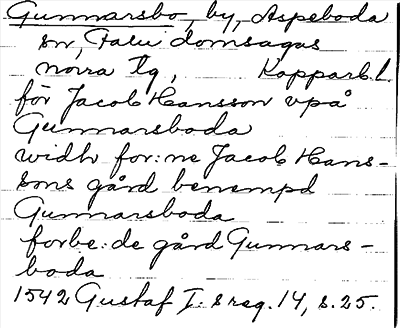 Gunnarsbo, by, Aspeboda
sn, Falu domsagas
norra tg, Kopparb.l.
för Jacob Hansson vpå
Gunnarsboda
widh for:ne Jacob Hans-
sons gård benempd
Gunnarsboda
forbe:de gård Gunnars-
boda
1542 Gustaf I:s reg. 14, s. 25.